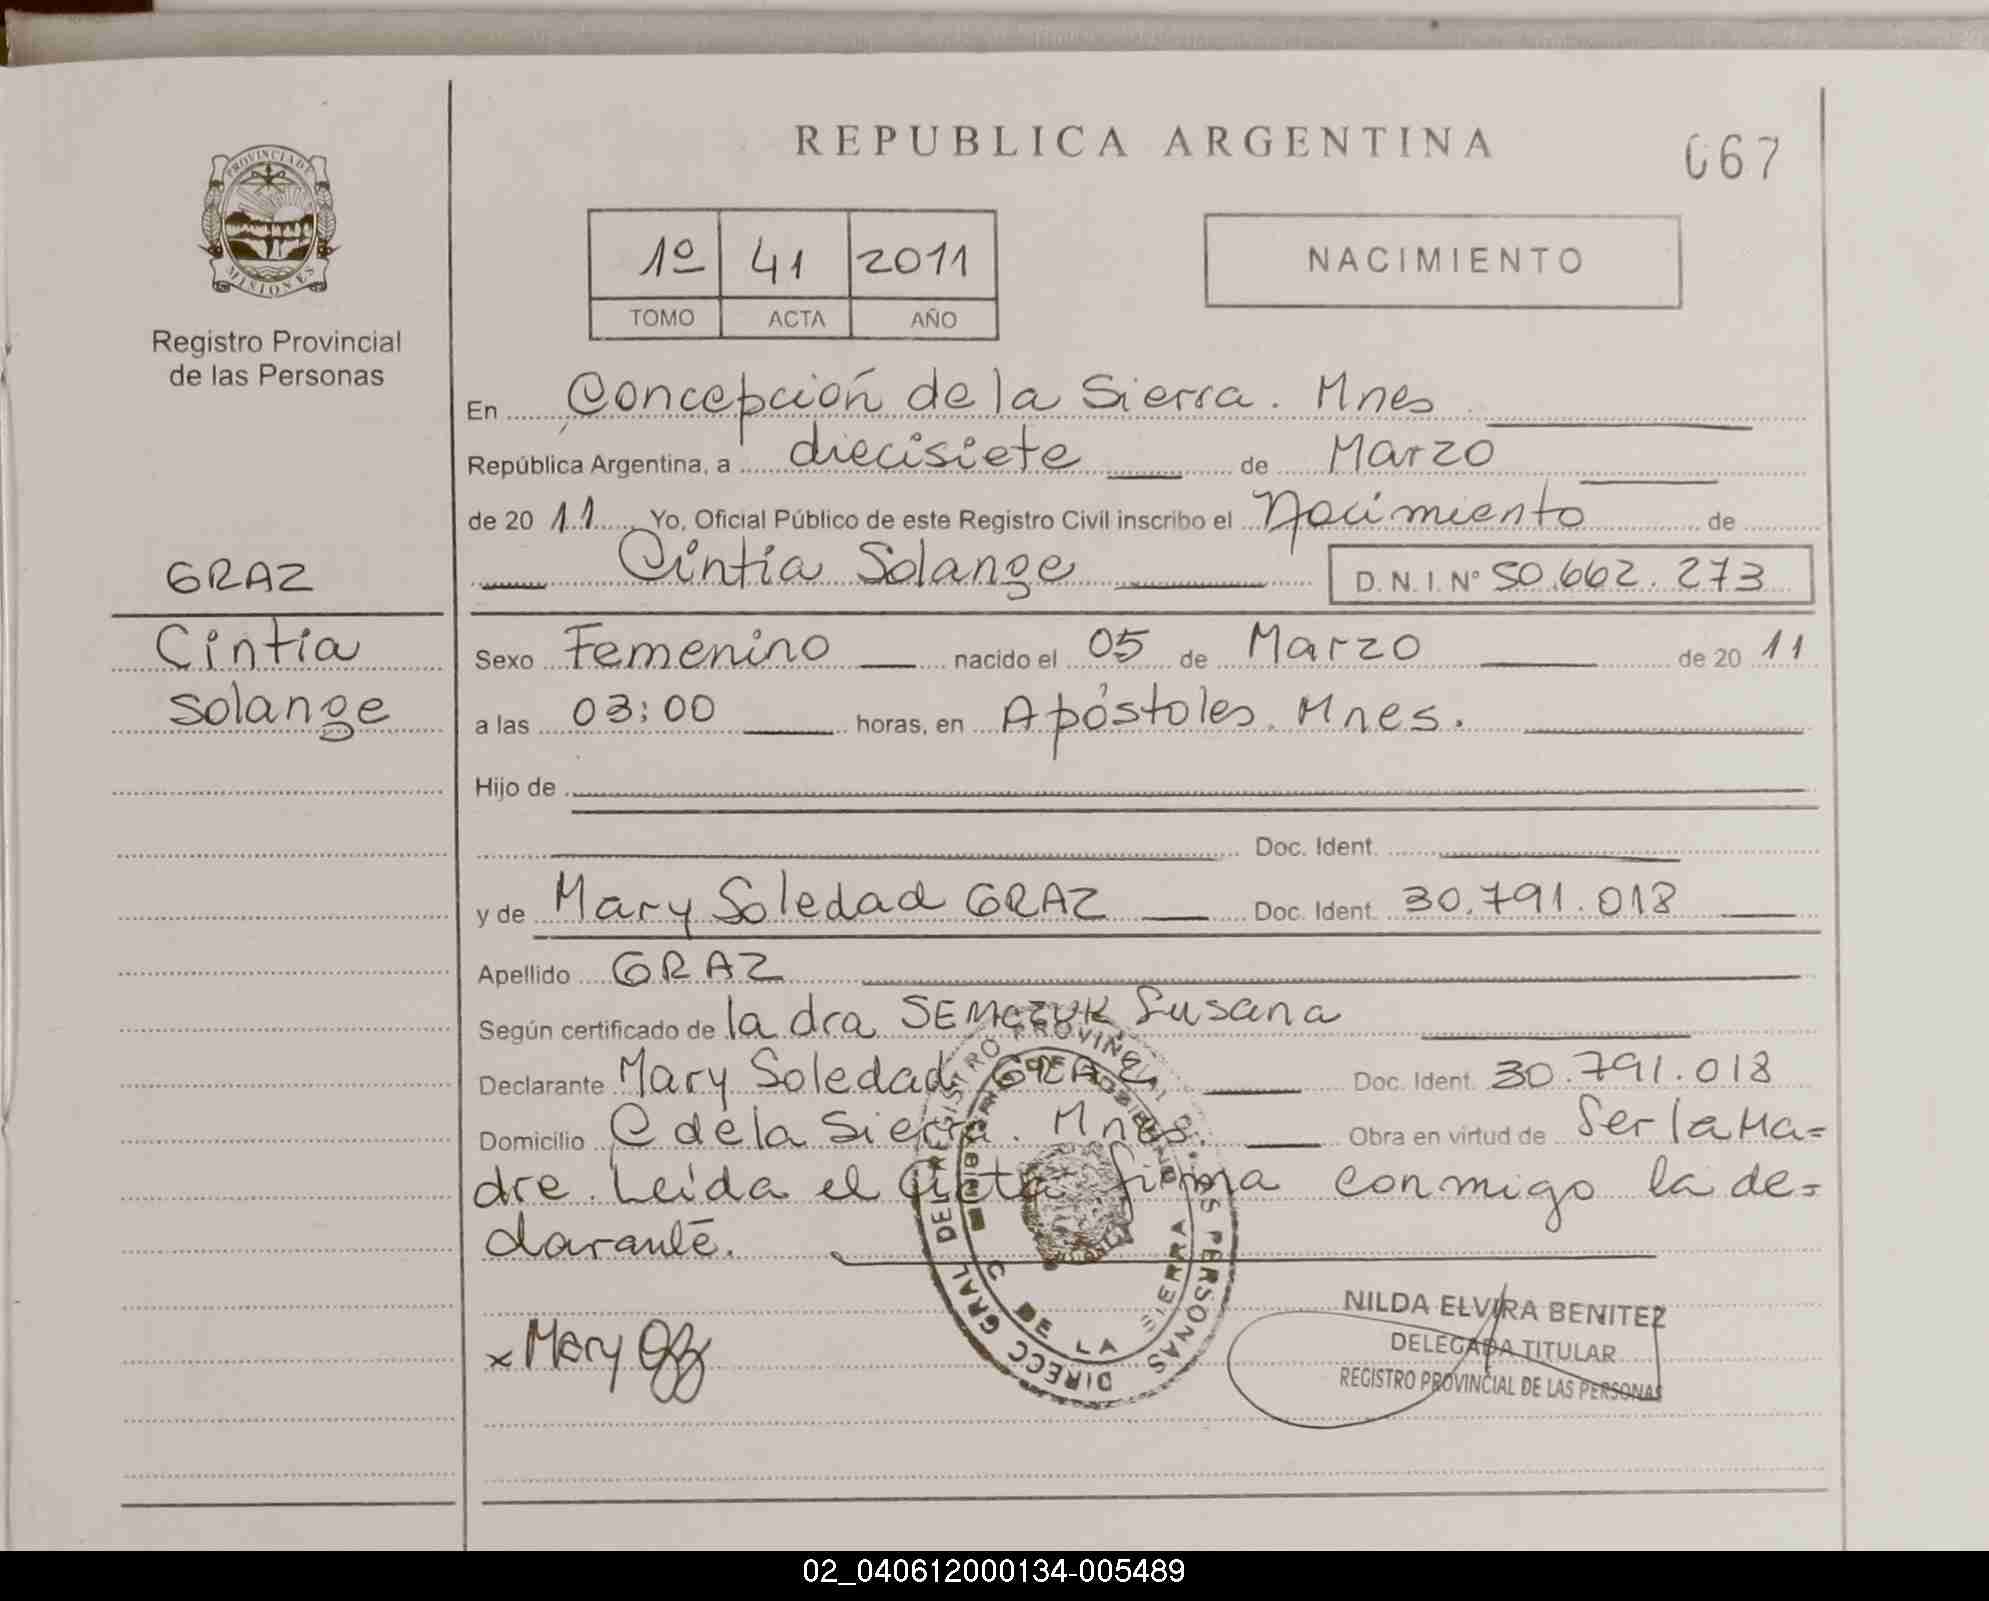 REPUBLICA ARGENTINA
067
PROVINCIA DE
MISIONES
Registro Provincial
de las Personas
1º 41 2011
TOMO ACTA AÑO
NACIMIENTO
En Concepción de la Sierra. Mnes
República Argentina, a diecisiete de Marzo
de 20 11 Yo, Oficial Público de este Registro Civil inscribo el Nacimiento de
Cintia Solange D.N.I. Nº 50.662.273
GRAZ
Cintia
Solange
Sexo Femenino nacido el 05 de Marzo de 20 11
a las 03:00 horas, en Apóstoles. Mnes.
Hijo de
Doc. Ident.
y de Mary Soledad GRAZ Doc. Ident. 30.791.018
Apellido GRAZ
Según certificado de la dra SEMCZUK Susana
Declarante Mary Soledad GRAZ Doc. Ident. 30.791.018
Domicilio C de la Sierra. Mnes. Obra en virtud de Ser la Ma=
dre. Leída el Acta firma conmigo la de=
clarante.
DIRECC GRAL DEL REGISTRO PROVINCIAL DE LAS PERSONAS
C DE LA SIERRA
x Mary
NILDA ELVIRA BENITEZ
DELEGADA TITULAR
REGISTRO PROVINCIAL DE LAS PERSONAS
02_040612000134-005489